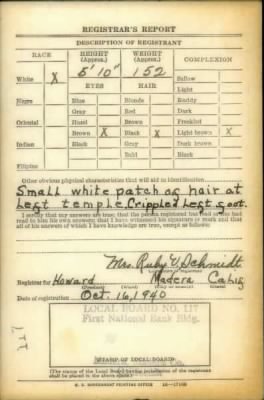 REGISTRAR'S REPORT
DESCRIPTION OF REGISTRANT
RACE HEIGHT (Approx.) WEIGHT (Approx.) COMPLEXION
5' 10" 152
White X Sallow
EYES HAIR Light
Negro Blue Blonde Ruddy
Gray Red Dark
Oriental Hazel Brown Freckled
Brown X Black X Light brown X
Indian Black Gray Dark brown
Bald Black
Filipino
Other obvious physical characteristics that will aid in identification
Small white patch of hair at
Left temple. Crippled Left foot.
I certify that my answers are true; that the person registered has read or has had
read to him his own answers; that I have witnessed his signature or mark and that
all of his answers of which I have knowledge are true, except as follows:
Mrs. Ruby V. Schmidt
Registrar for Howard Madera Calif
Date of registration Oct. 16, 1940
LOCAL BOARD NO. 117
First National Bank Bldg.
STAMP OF LOCAL BOARD
(The stamp of the Local Board having jurisdiction of the registrant
shall be placed in the above space.)
U. S. GOVERNMENT PRINTING OFFICE